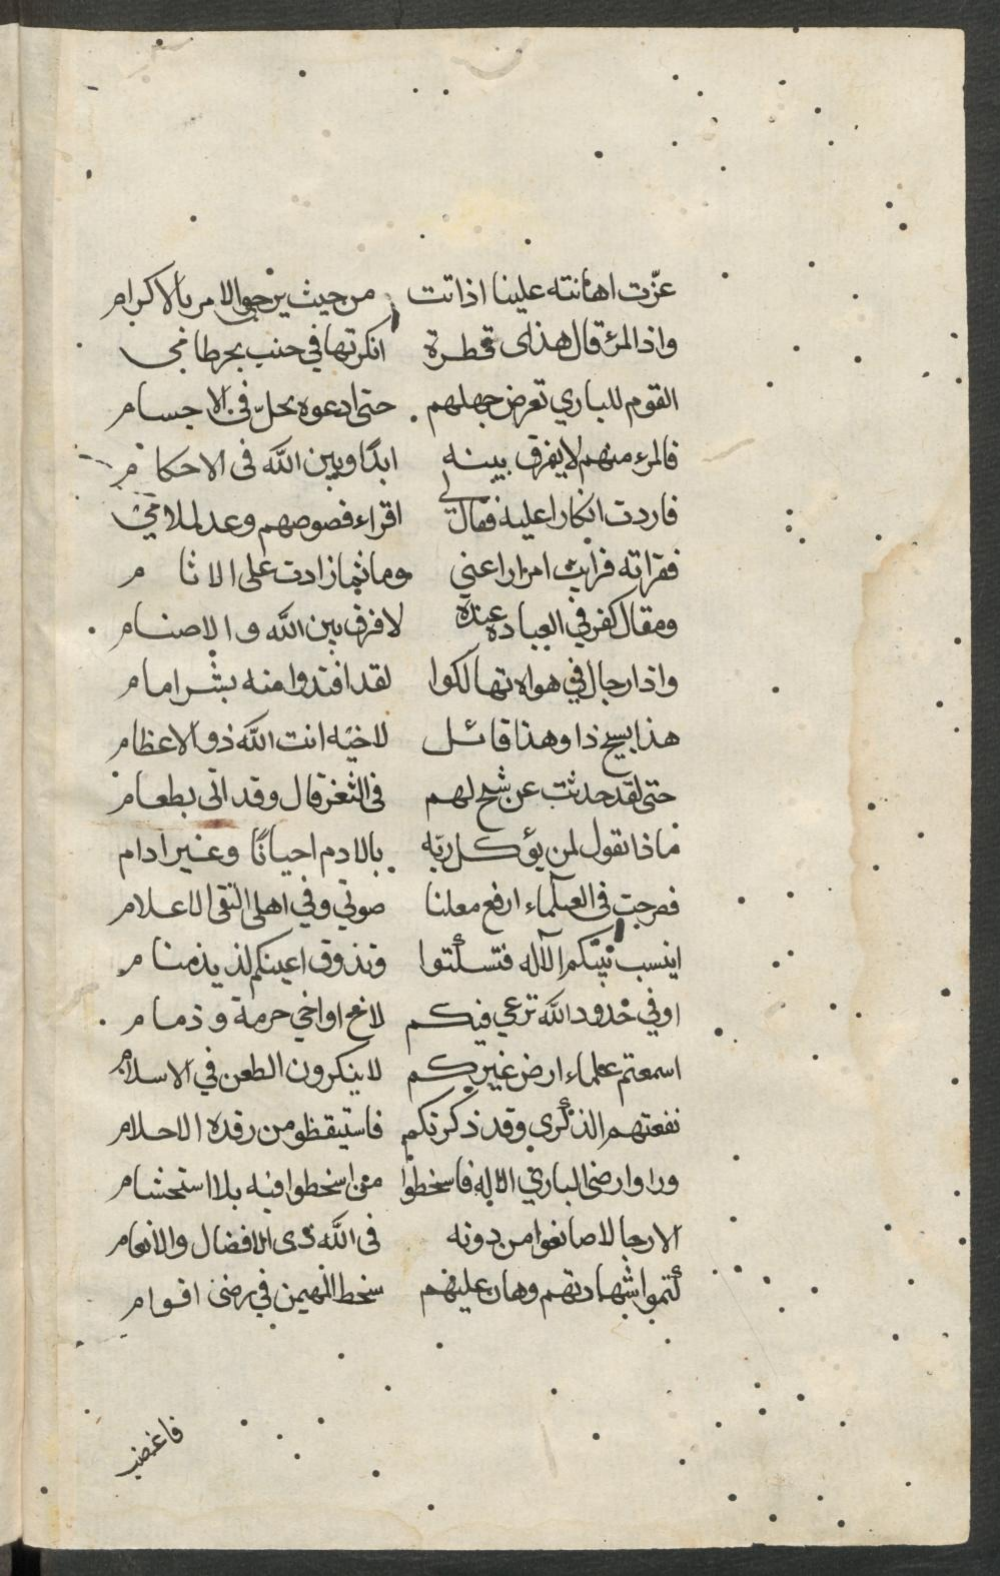 عزّت اهانته علينا اذا تت من حيث يرجى الامر بالاكرام
واذ المرء قال هذاى قطرة انكرتها في جنب بحر طامى
القوم للباري تعرض جهلهم حتى ادعوه يحلّ فى الاجسام
فالمرء منهم لا يفرق بينه ابدًا وبين اللّه فى الاحكام
فاردت انكارا عليه فقال لي اقراء فصوصهم وعد لملامي
فقراته فرايت امرارا عني وماثما زادت على الاثام
ومقال كفر في العبادة عنده لا فرق بين اللّه والاصنام
واذا رجال في هواه تهالكوا لقد اقتدوا منه بشر امام
هذا يسبح ذا وهذا قائل لاخيه انت اللّه ذو الاعظام
حتى لقد حدثت عن شيخ لهم فى الثغر قال وقد اتى بطعام
ماذا تقول لمن يؤكل ربّه بالادم احيانًا وغير ادام
فصرحت فى العلماء ارفع معلنا صوتي وفي اهل التقى الاعلام
اينسب نبيّكم الاله فتسكتوا وتذوق اعينكم لذيذ منام
اوفي حدود اللّه ترعي فيكم لاخ اواخي حرمة وذمام
اسمعتم علماء ارض غيركم لا ينكرون الطعن في الاسلام
نفعتهم الذكرى وقد ذكرتكم فاستيقظو من رقدة الاحلام
وراوا رضى الباري الاله فاسخطوا من اسخطوا فيه بلا استحشام
الا رجالا صانعوا من دونه فى اللّه ذى الافضال والانعام
كتموا شهادتهم وهان عليهم سخط المهيمن في رضى اقوام
فاغضب